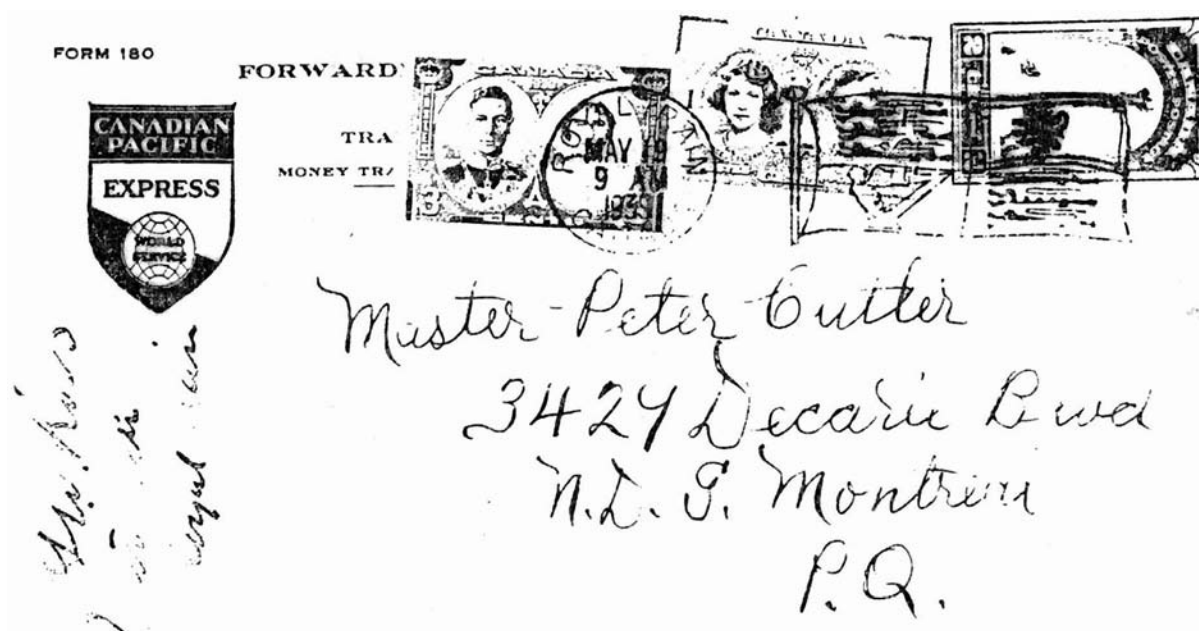 FORM 180
FORWARD
TRA
MONEY TRA
CANADIAN
PACIFIC
EXPRESS
WORLD
SERVICE
CANADA
3
ROYAL TRAIN
MAY 19
9
1939
Master Peter Cutler
3424 Decarie Blvd
N.D.G. Montreal
P.Q.
is